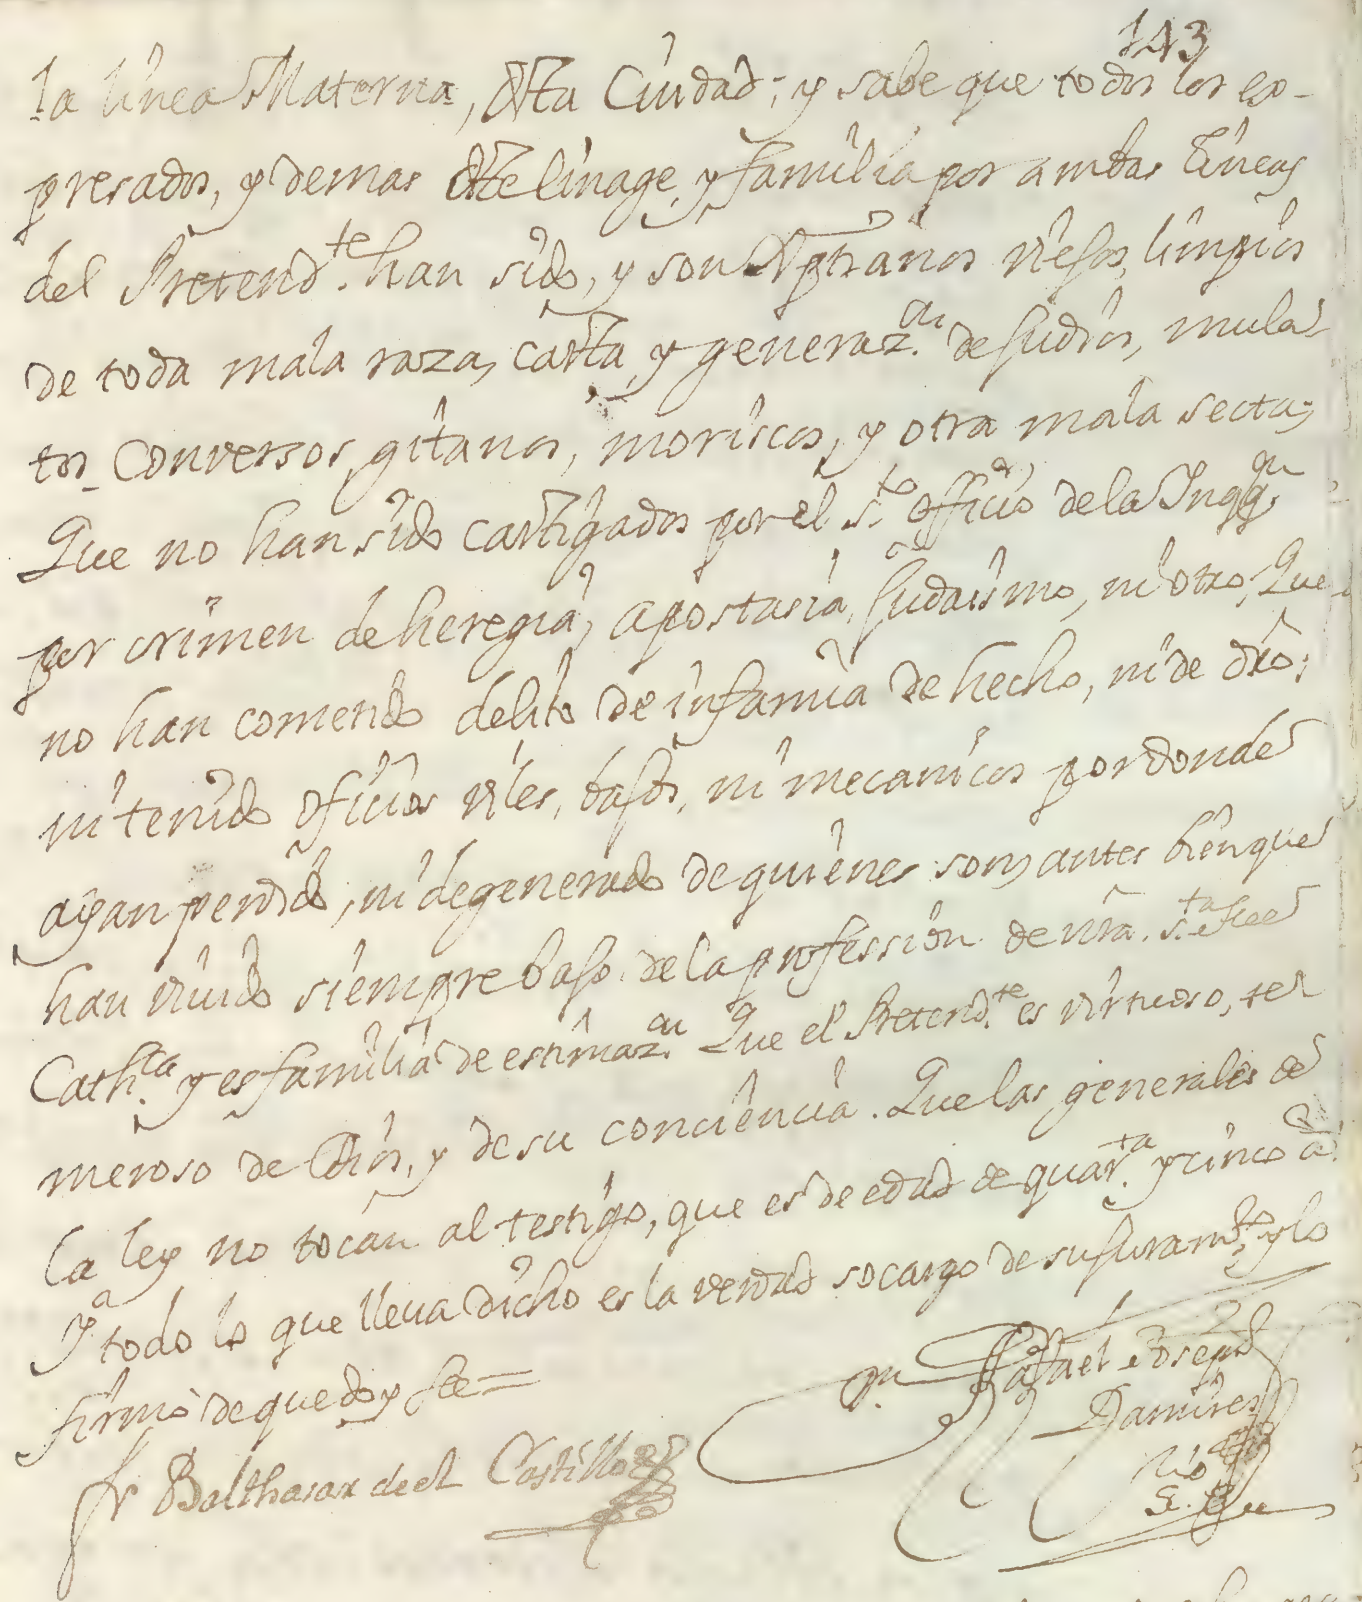 143
la linea Materna, desta Ciudad; y sabe que todos los ex-
presados, y demas deste linage, y familia por ambas lineas
del Pretend.te han sido, y son Xptianos viejos, limpios
de toda mala raza, casta, y generaz.on de judios, mula-
tos, conversos, gitanos, moriscos, y otra mala secta;
Que no han sido castigados por el s.to officio de la Inqq.on
por crimen de heregia, apostasia, judaismo, ni otro; Que
no han cometido delito de infamia de hecho, ni de dro;
ni tenido oficios viles, bajos, ni mecanicos por donde
ayan perdido, ni degenerado de quienes son; antes bien que
han vivido siempre bajo de la profession de nra. s.ta fee
Cath.ca y es familia de estimaz.on Que el Pretend.te es virtuoso, te-
meroso de Dios, y de su conciencia. Que las generales de
la ley no tocan al testigo, que es de edad de quar.ta y cinco a.s
Y a todo lo que lleva dicho es la verdad so cargo de su juram.to y lo
firmó de que doy fee =
fr Balthasar de el Castillo
Rafael Joseph
Ramires